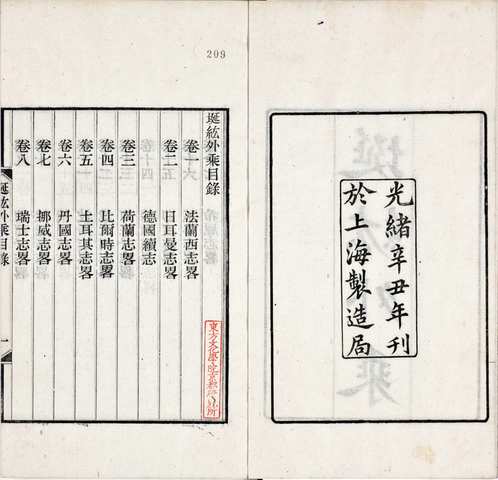 光緒辛丑年刊
於上海製造局
209
埏紘外乘目錄
卷一 六 法蘭西志畧
卷二 五 日耳曼志畧
德國續志
卷三 荷蘭志畧
卷四 比爾時志畧
卷五 土耳其志畧
卷六 丹國志畧
卷七 挪威志畧
卷八 瑞士志畧
埏紘外乘目錄
一
東方文化學院京都研究所